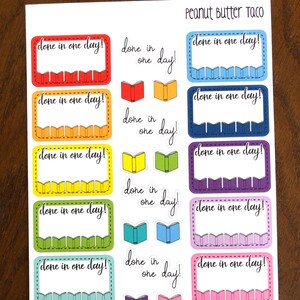 Peanut Butter Taco
done in one day!
done in
one day!
done in one day!
done in one day!
done in
one day!
done in one day!
done in one day!
done in
one day!
done in one day!
done in one day!
done in one day!
done in one day!
done in
one day!
done in one day!